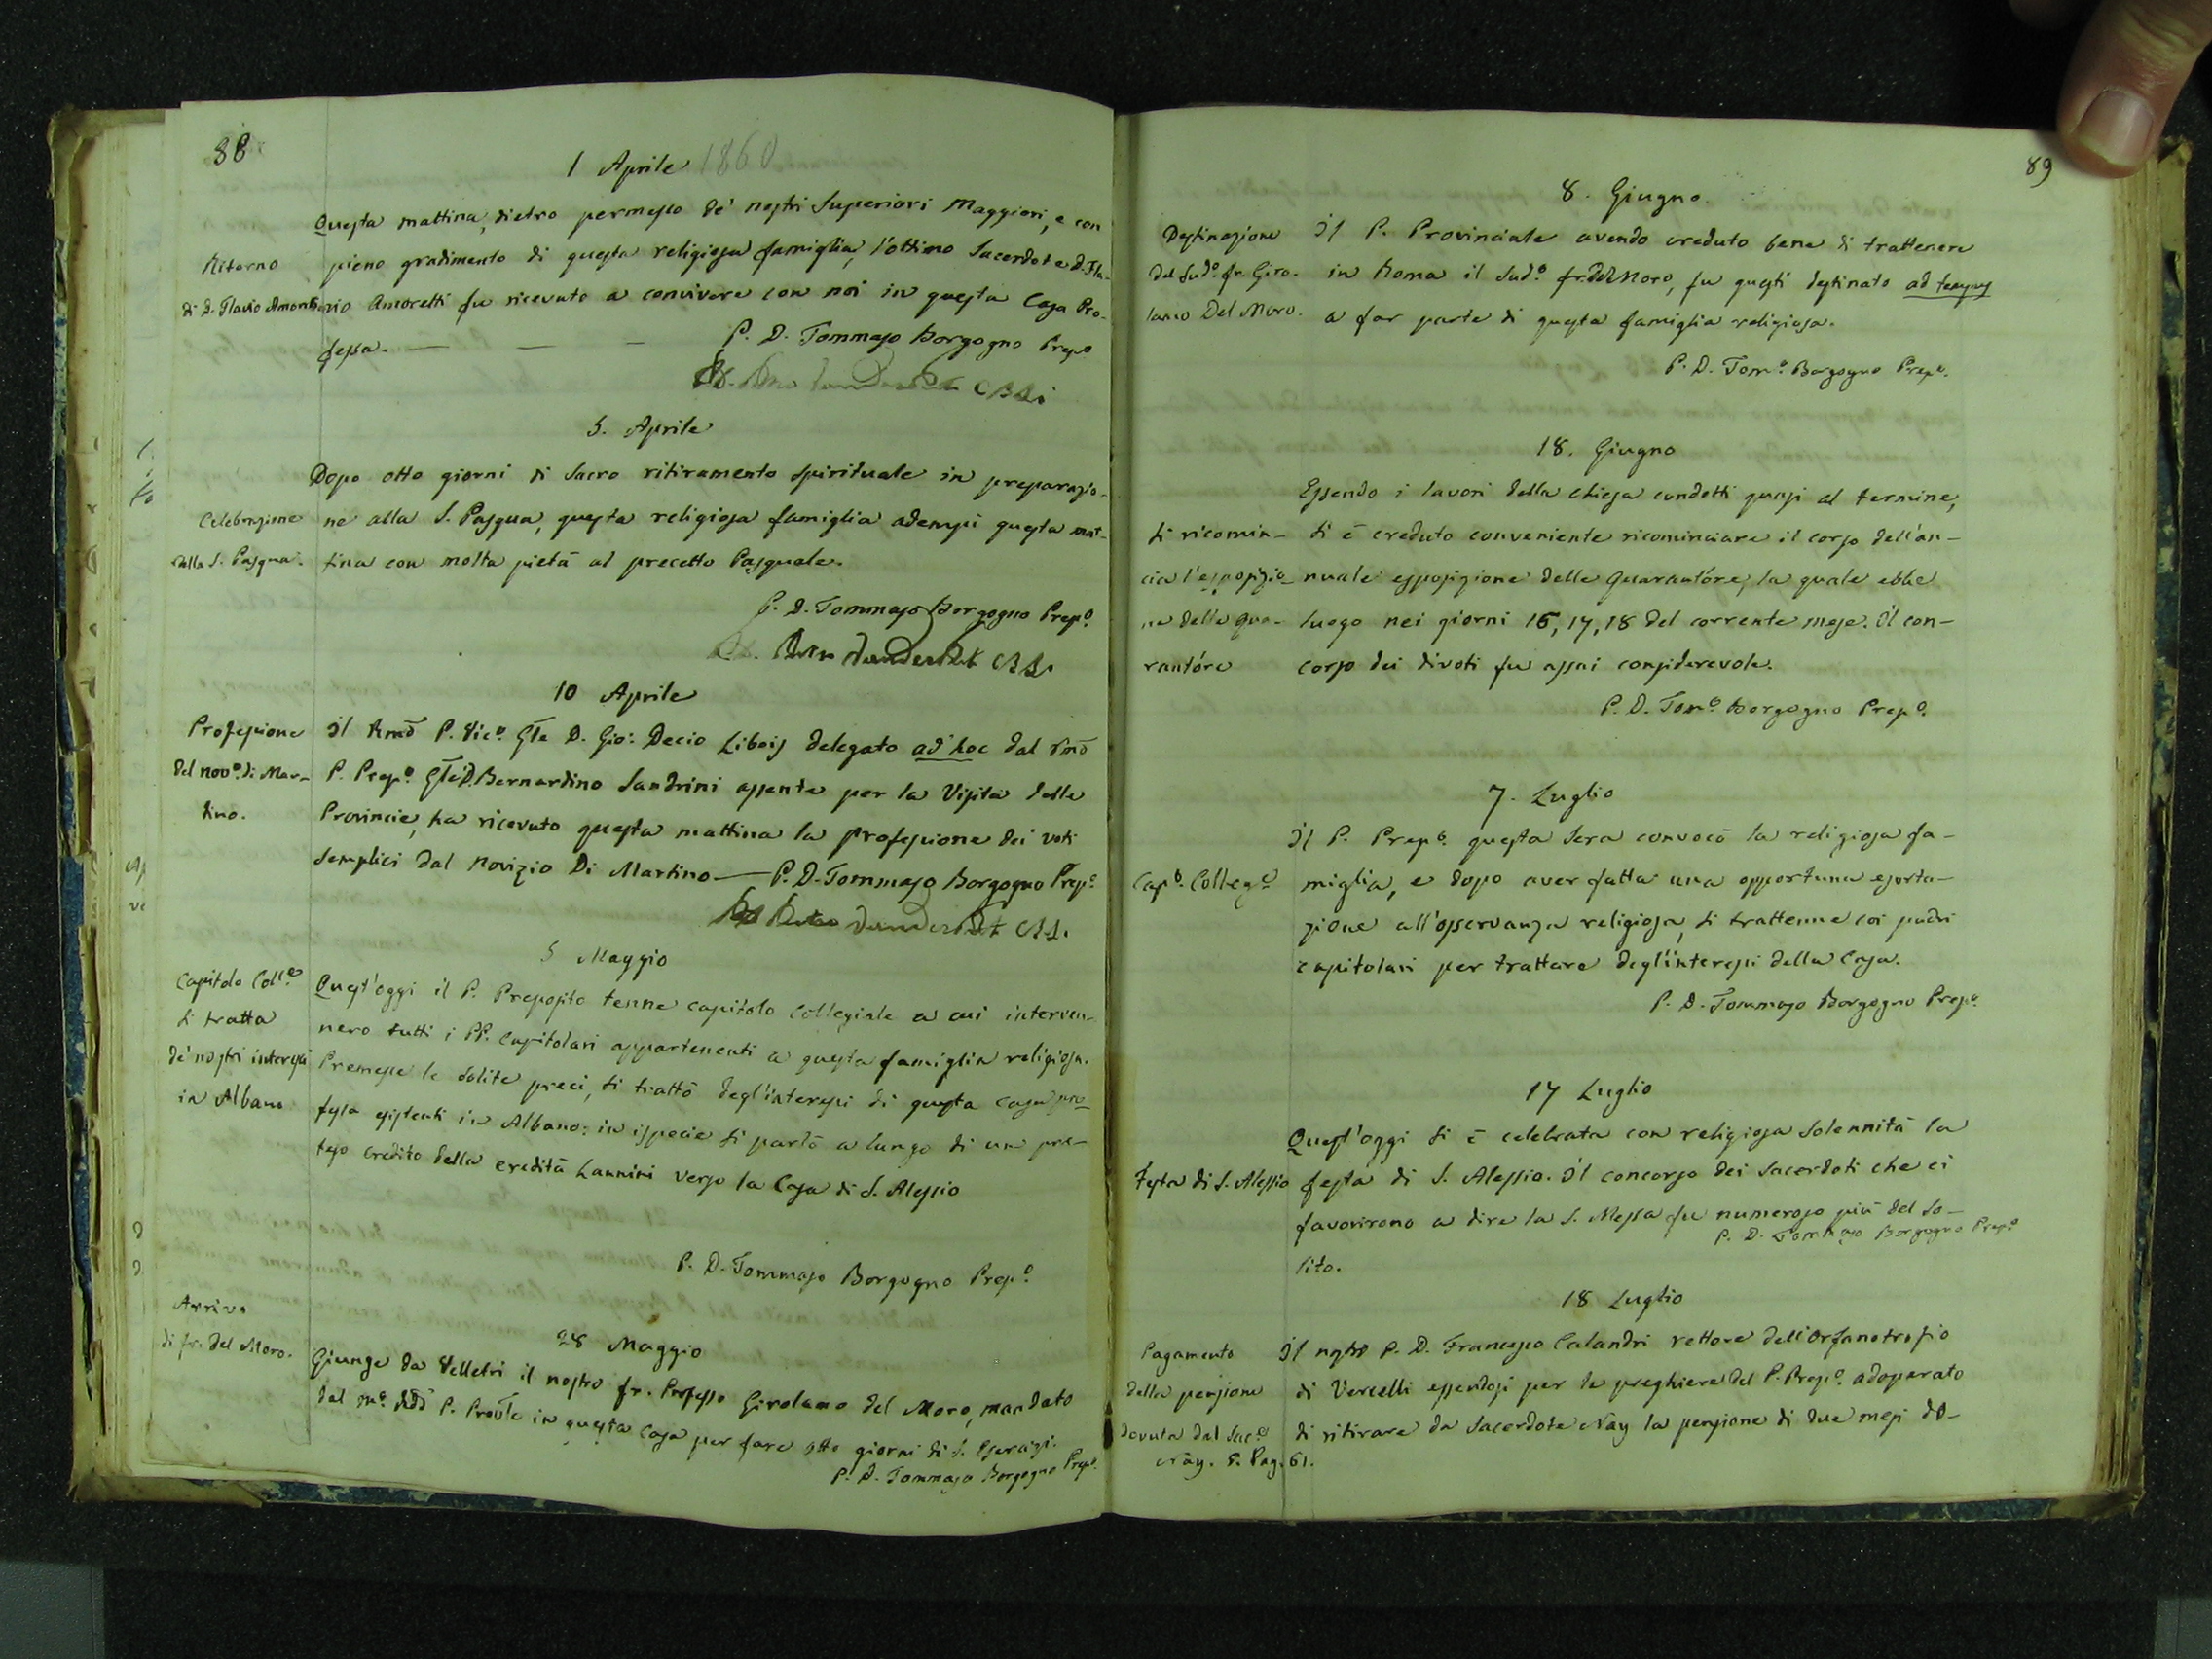 88
1 Aprile 1860
Questa mattina, dietro permesso de' nostri Superiori Maggiori, e con
Ritorno
pieno gradimento di questa religiosa famiglia, l'ottimo Sacerdote D. Fla-
di D. Flavio Amoretti
vio Amoretti fu ricevuto a convivere con noi in questa Casa Pro-
fessa. — — — P. D. Tommaso Borgogno Prepo
5. Aprile
Dopo otto giorni di Sacro ritiramento spirituale in preparazio-
Celebrazione
ne alla S. Pasqua, questa religiosa famiglia adempì questa mat-
della S. Pasqua.
tina con molta pietà al precetto Pasquale.
P. D. Tommaso Borgogno Prepº.
10 Aprile
Professione
Il Rmõ P. Vicº. Gle D. Gio: Decio Libois delegato ad hoc dal Rmõ
del novº. di Mar-
P. Prepº. Gle D. Bernardino Sandrini assente per la Visita delle
tino.
Provincie, ha ricevuto questa mattina la professione dei voti
semplici dal Novizio Di Martino — P. D. Tommaso Borgogno Prepº
5 Maggio
Capitolo Colle
Quest'oggi il P. Preposito tenne capitolo collegiale a cui interven-
Si tratta
nero tutti i PP. Capitolari appartenenti a questa famiglia religiosa.
de' nostri interessi
Premesse le solite preci, si trattò degl'interessi di questa casa pro-
in Albano
fessa esistenti in Albano: in ispecie si parlò a lungo di un pre-
teso credito della eredità Lannini verso la Casa di S. Alessio
P. D. Tommaso Borgogno Prepº
Arrivo
28 Maggio
di fr. Del Moro.
Giunge da Velletri il nostro fr. Professo Girolamo del Moro, mandato
dal mº. P. Provle in questa Casa per fare otto giorni di S. Esercizi.
P. D. Tommaso Borgogno Prepº.
89
8. Giugno.
Destinazione
Il P. Provinciale avendo creduto bene di trattenere
del Sudº. fr. Giro-
in Roma il Sudº fr. Del Moro, fu questi destinato ad tempus
lamo Del Moro.
a far parte di questa famiglia religiosa.
P. D. Tomº. Borgogno Prepº.
18. Giugno
Essendo i lavori della chiesa condotti quasi al termine,
Si ricomin-
si è creduto conveniente ricominciare il corso dell'an-
cia l'esposizio-
nuale esposizione delle Quarant'ore, la quale ebbe
ne delle Qua-
luogo nei giorni 16, 17, 18 del corrente mese. Il con-
rant'ore
corso dei divoti fu assai considerevole.
P. D. Tomº Borgogno Prepº.
7. Luglio
Il P. Prepº. questa sera convocò la religiosa fa-
Capº. Collegº
miglia, e dopo aver fatta una opportuna esorta-
zione all'osservanza religiosa, si trattenne coi padri
capitolari per trattare degl'interessi della Casa.
P. D. Tommaso Borgogno Prepº
17 Luglio
Quest'oggi si è celebrata con religiosa solennità la
Festa di S. Alessio
festa di S. Alessio. Il concorso dei Sacerdoti che ci
favorirono a dire la S. Messa fu numeroso più del so-
P. D. Tommaso Borgogno Prepº
lito.
18 Luglio
Pagamento
Il nostro P. D. Francesco Calandri rettore dell'Orfanotrofio
della pensione
di Vercelli essendosi per le preghiere del P. Prepº. adoperato
dovuta dal Sace
di ritirare da Sacerdote Nay la pensione di due mesi do-
Nay. V. Pag. 61.